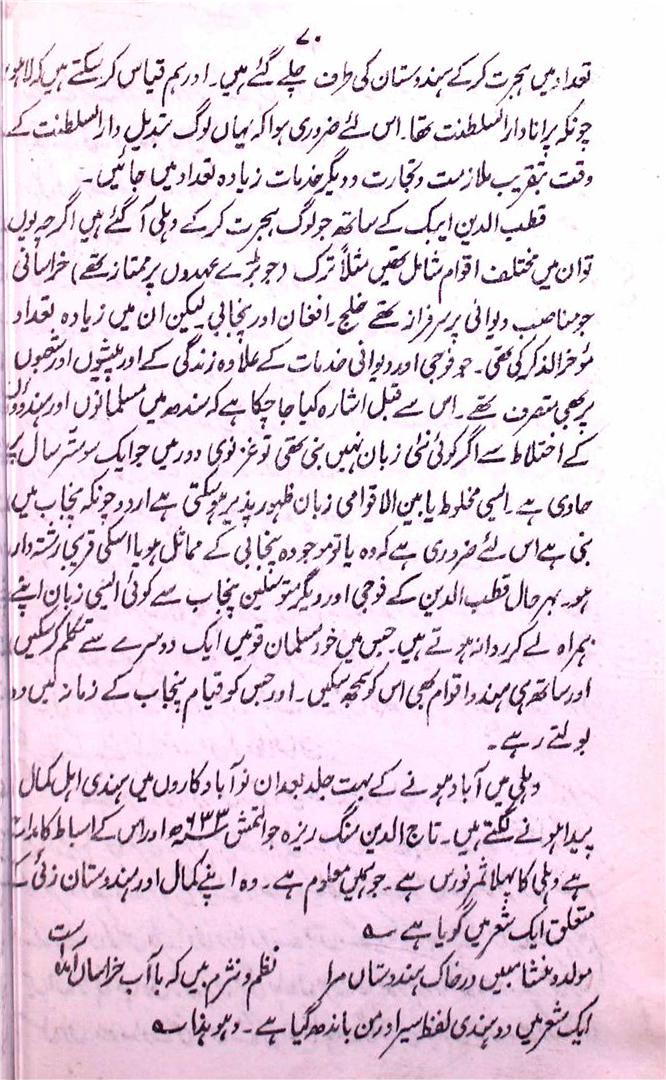 ۷۰
تعداد میں ہجرت کر کے ہندوستان کی طرف چلے گئے ہیں۔ اور ہم قیاس کر سکتے ہیں کہ لاہور
چونکہ پرانا دار السلطنت تھا۔ اس لئے ضروری ہوا کہ یہاں لوگ تبدیل دار السلطنت کے
وقت بتقریب ملازمت و تجارت و دیگر خدمات زیادہ تعداد میں جائیں۔
قطب الدین ایبک کے ساتھ جو لوگ ہجرت کر کے دہلی آ گئے ہیں اگرچہ یوں
تو ان میں مختلف اقوام شامل تھیں مثلاً ترک (جو بڑے عہدوں پر ممتاز تھے) خراسانی
جو مناصب دیوانی پر سرفراز تھے خلج۔ افغان اور پنجابی لیکن ان میں زیادہ تعداد
مؤخر الذکر کی تھی۔ جو فوجی اور دیوانی خدمات کے علاوہ زندگی کے اور پیشوں اور شعبوں
پر بھی متصرف تھے۔ اس سے قبل اشارہ کیا جا چکا ہے کہ سندھ میں مسلمانوں اور ہندوؤں
کے اختلاط سے اگر کوئی نئی زبان نہیں بنی تھی تو غزنوی دور میں جو ایک سو ستر سال پر
حاوی ہے۔ ایسی مخلوط یا بین الاقوامی زبان ظہور پذیر ہو سکتی ہے اردو چونکہ پنجاب میں
بنی ہے اس لئے ضروری ہے کہ وہ یا تو موجودہ پنجابی کے مماثل ہو یا اسکی قریبی رشتہ دار
ہو۔ بہر حال قطب الدین کے فوجی اور دیگر متوسلین پنجاب سے کوئی ایسی زبان اپنے
ہمراہ لے کر روانہ ہوتے ہیں۔ جس میں خود مسلمان قومیں ایک دوسرے سے تکلم کر سکیں
اور ساتھ ہی ہندو اقوام بھی اس کو سمجھ سکیں۔ اور جس کو قیام پنجاب کے زمانہ میں وہ
بولتے رہے۔
دہلی میں آباد ہونے کے بہت جلد بعد ان نو آباد کاروں میں ہندی اہل کمال
پیدا ہونے لگتے ہیں۔ تاج الدین سنگ ریزہ جو التمش ۶۳۳ھ اور اس کے اسباط کا مداح
ہے دہلی کا پہلا ثمر نورس ہے۔ جو ہمیں معلوم ہے۔ وہ اپنے کمال اور ہندوستان زائی کے
متعلق ایک شعر میں گویا ہے ؎
مولد و منشا ببیں در خاک ہندوستاں مرا نظم و نثرم بیں کہ با آب خراساں آمدہ است
ایک شعر میں دو ہندی لفظ سیر اور من باندھ گیا ہے۔ وہو ہذا ؎